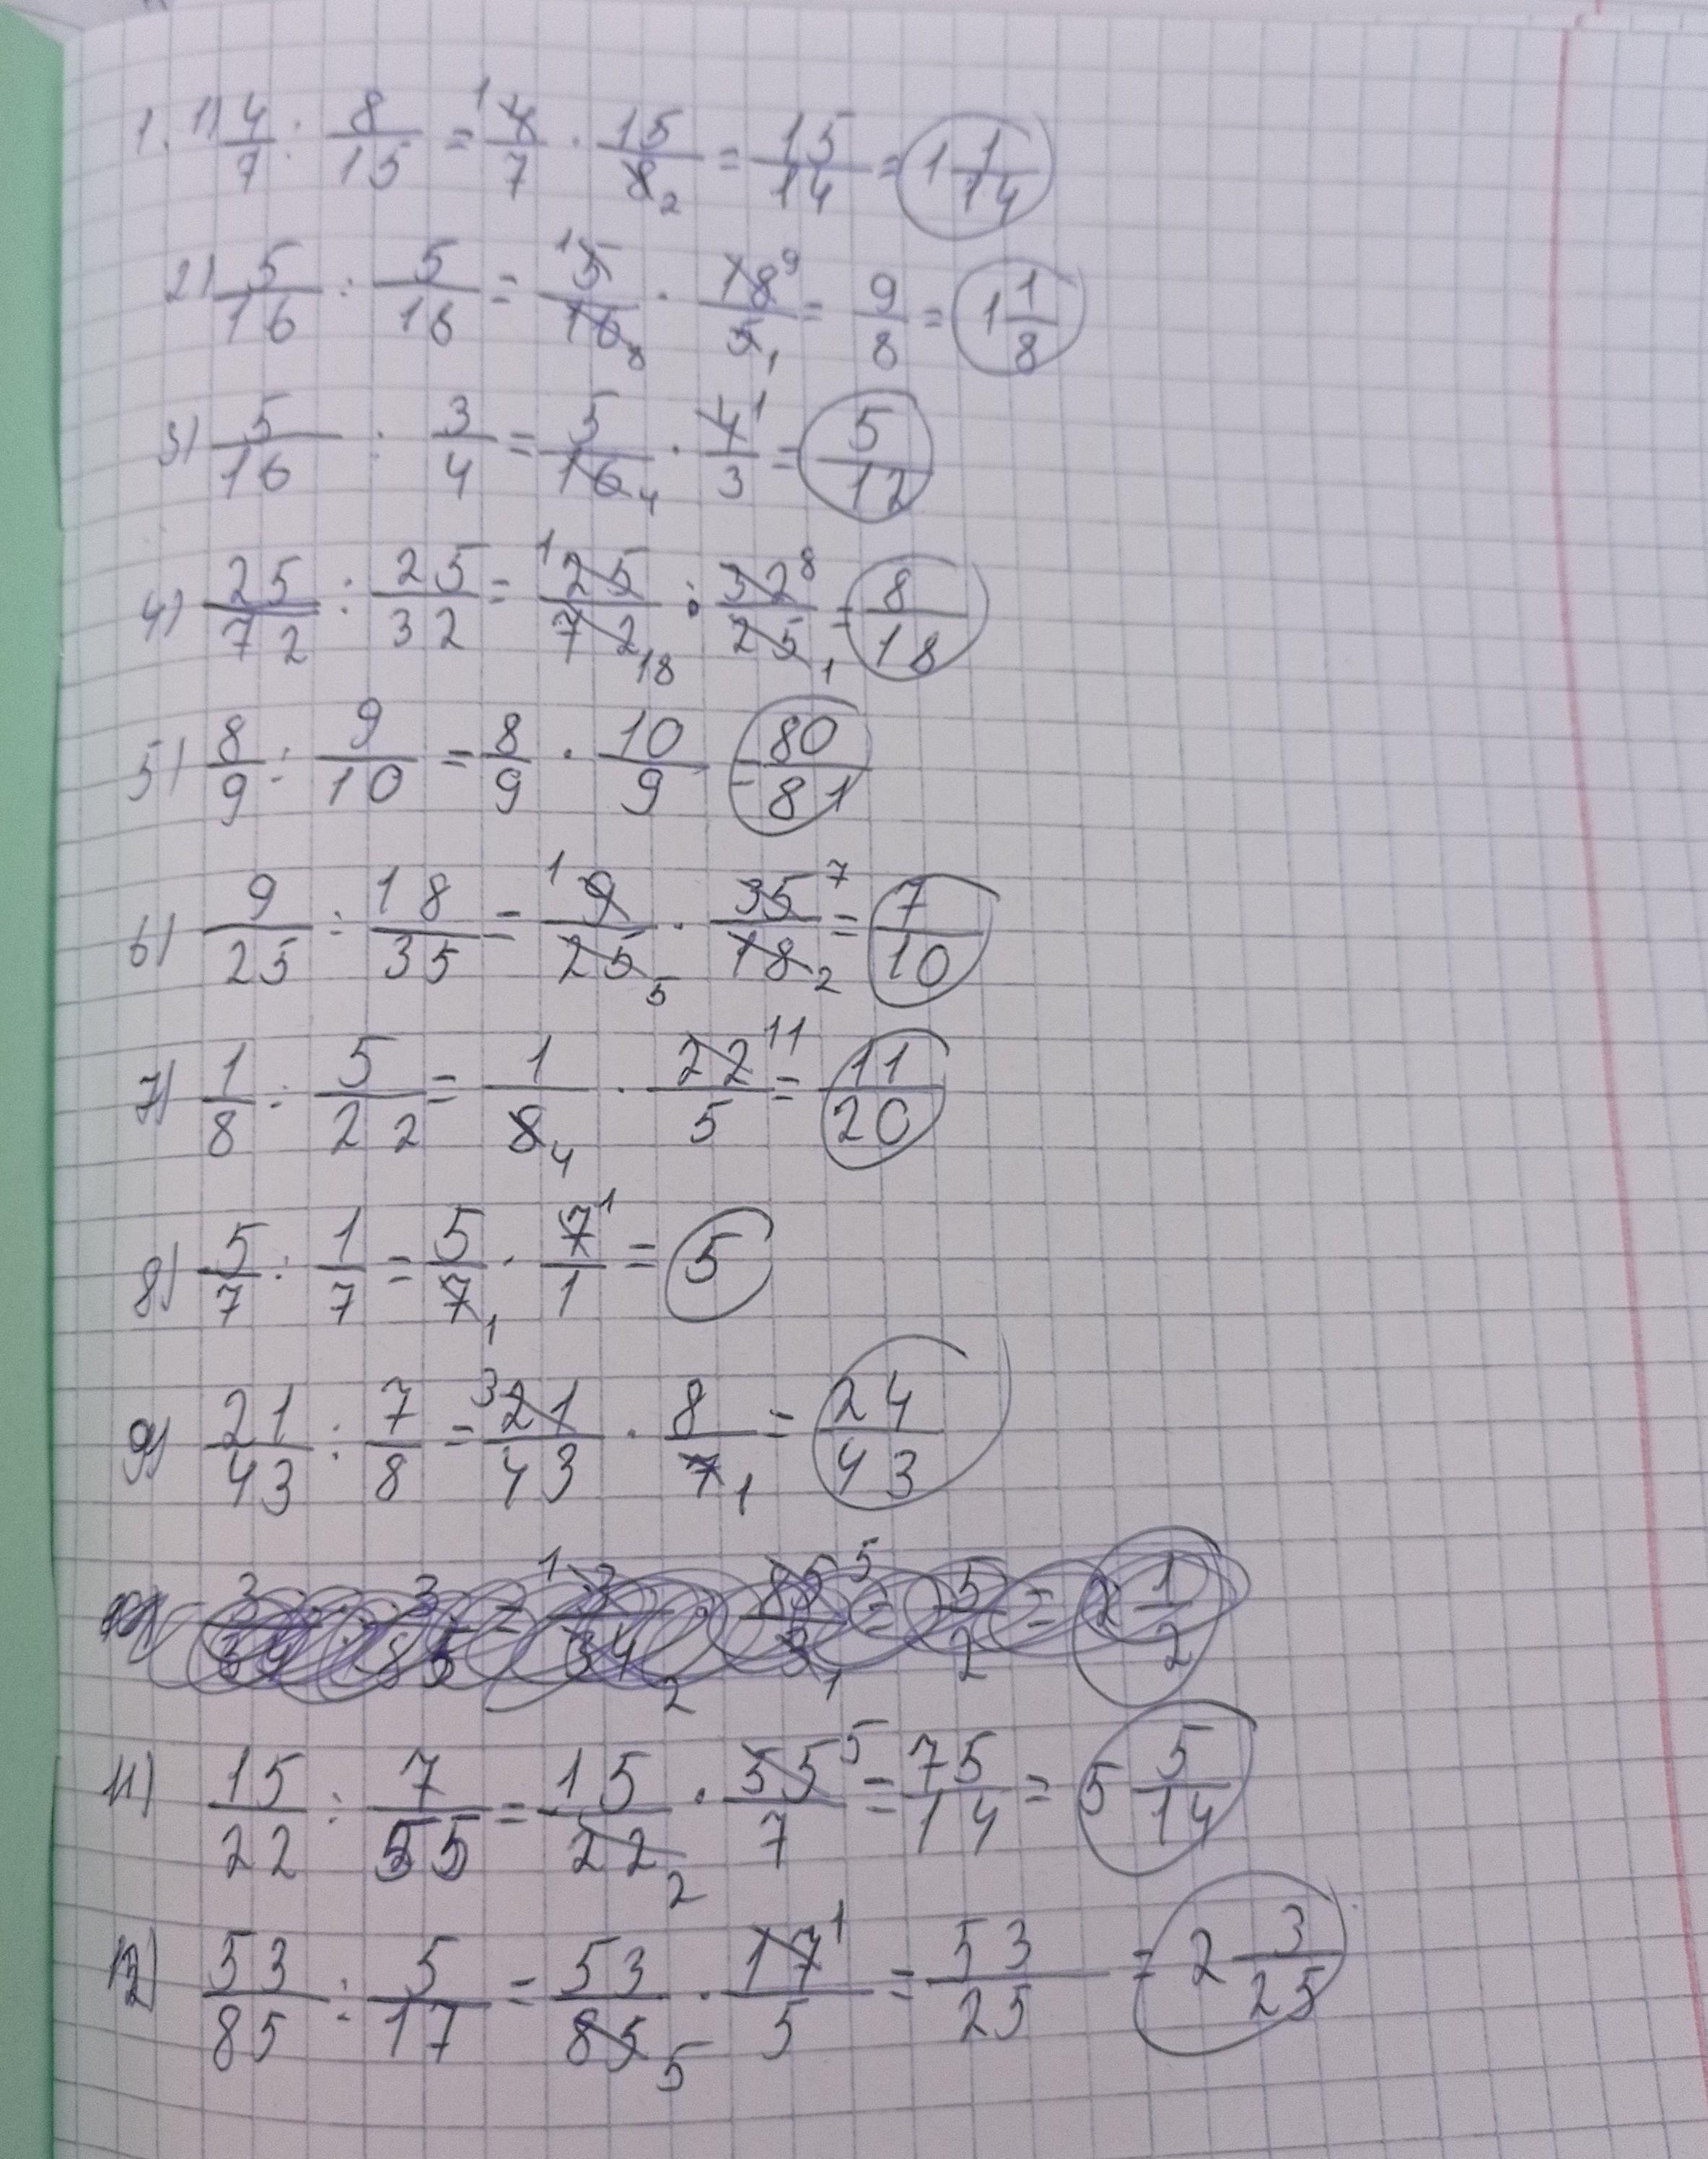 1. 1) 4/7 : 8/15 = 1 4/7 · 15/8 2 = 15/14 = 1 1/14
2) 5/16 : 5/18 = 1 5/16 8 · 18 9/5 1 = 9/8 = 1 1/8
3) 5/16 : 3/4 = 5/16 4 · 4 1/3 = 5/12
4) 25/72 : 25/32 = 1 25/72 18 · 32 8/25 1 = 8/18
5) 8/9 : 9/10 = 8/9 · 10/9 = 80/81
6) 9/25 : 18/35 = 1 9/25 5 · 35 7/18 2 = 7/10
7) 1/8 : 5/22 = 1/8 4 · 22 11/5 = 11/20
8) 5/7 : 1/7 = 5/7 1 · 7 1/1 = 5
9) 21/43 : 7/8 = 3 21/43 · 8/7 1 = 24/43
10) 3/34 : 3/85 = 1 3/34 2 · 85 5/3 1 = 5/2 = 2 1/2
11) 15/22 : 7/55 = 15/22 2 · 55 5/7 = 75/14 = 5 5/14
12) 53/85 : 5/17 = 53/85 5 · 17 1/5 = 53/25 = 2 3/25